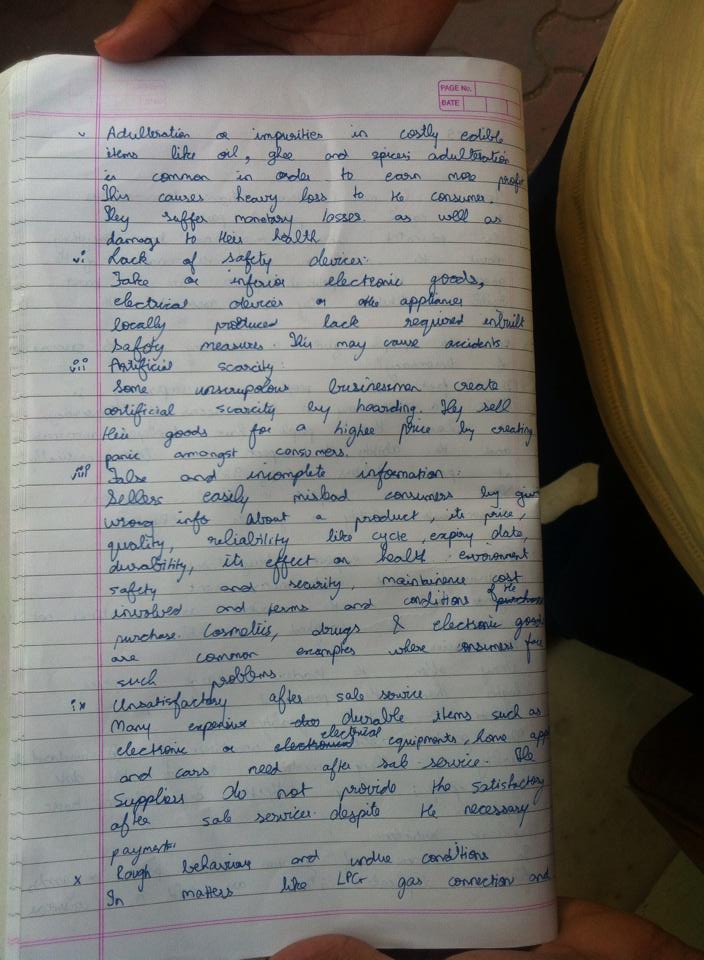 PAGE No.
DATE
v Adulteration or impurities in costly edible
items like oil, ghee and spices adulteration
is common in order to earn more profit
This causes heavy loss to the consumer.
They suffer monetary losses as well as
damage to their health
vi Lack of safety devices:
Fake or inferior electronic goods,
electrical devices or other appliances
locally produced lack required inbuilt
safety measures. This may cause accidents
vii Artificial scarcity:
Some unscrupolous businessman create
artificial scarcity by hoarding. They sell
their goods for a higher price by creating
panic amongst consumers.
viii False and incomplete information:
Sellers easily mislead consumers by givin
wrong info about a product, its price,
quality, reliability like cycle, expiry date,
durability, its effect on health environment
safety and security, maintainence cost
involved and terms and conditions of the purchase
purchase. Cosmetics, drugs & electronic goods
are common examples where consumers face
such problems
ix Unsatisfactory after sale service
Many expensive durable items such as
electronic or electronical electrical equipments, home appl
and cars need after sale service. The
Suppliers do not provide the satisfactory
after sale services despite the necessary
payment.
x Rough behaviour and undue conditions
In matters like LPG gas connection and